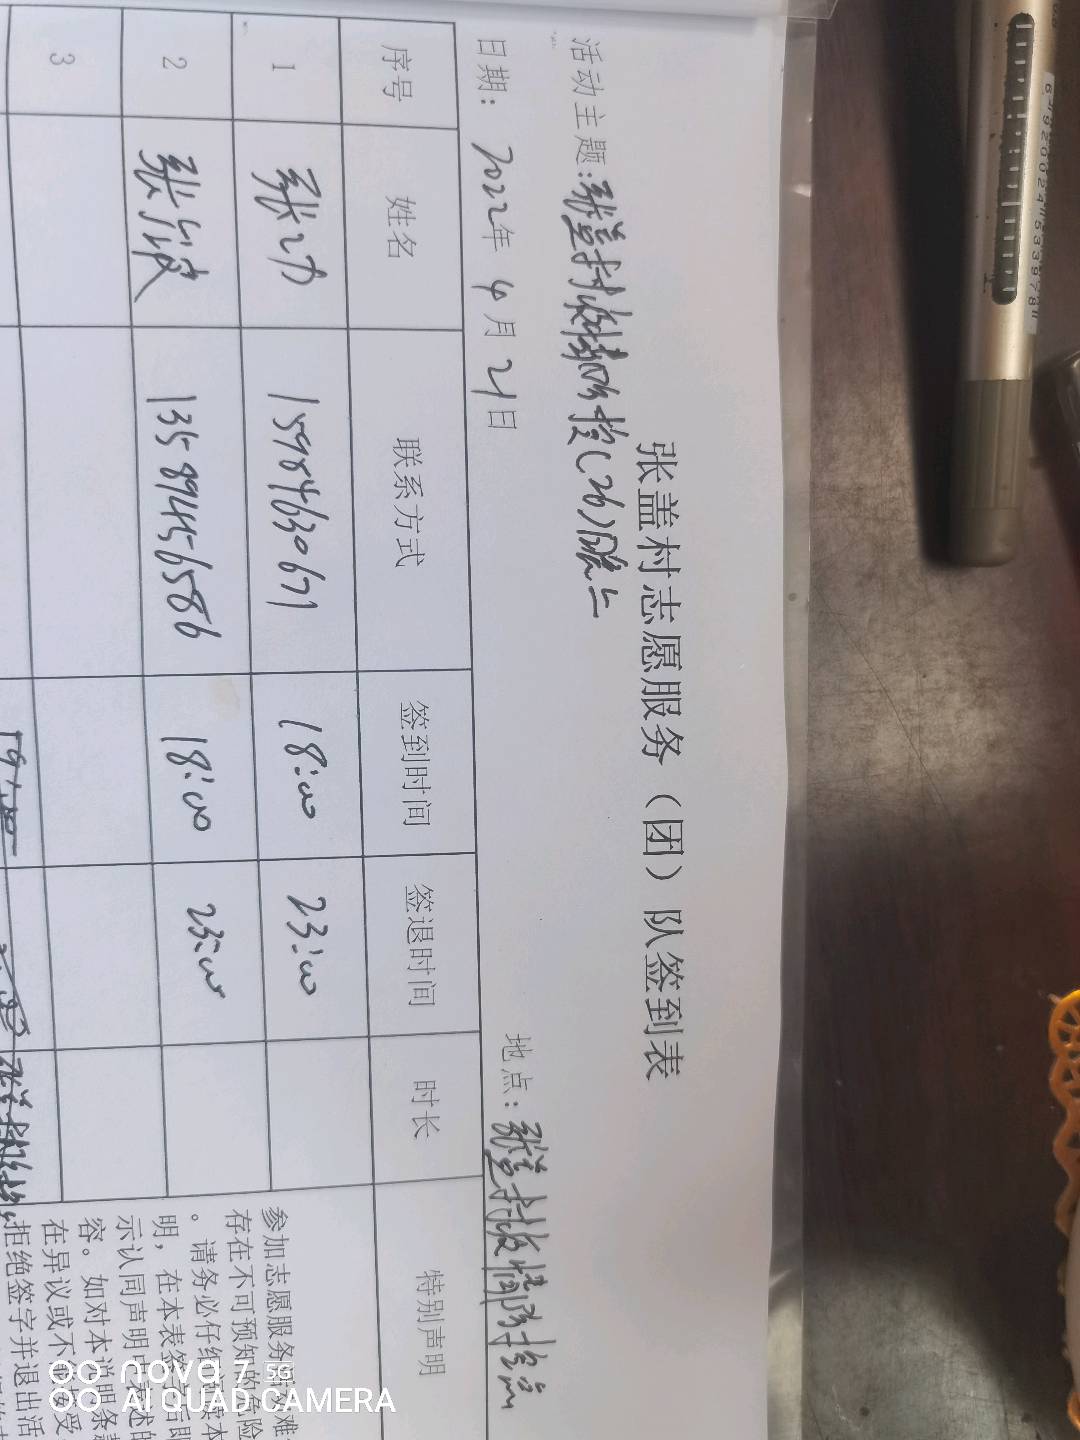 张盖村志愿服务（团）队签到表
活动主题:张盖村疫情防控(26)晚上
日期: 2022年 4月 21日
地点: 张盖村疫情防控点
序号 姓名 联系方式 签到时间 签退时间 时长 特别声明
1 张功 15984630671 18:00 23:00
2 张 13589456586 18:00 23:00
3
参加志愿服务
存在不可预知的危险
。请务必仔细阅读本
明，在本表签字后即
示认同声明中表述的
容。如对本说明条
在异议或不能接受
拒绝签字并退出活
19:00
nova 7 5G
AI QUAD CAMERA
6 920024 533978